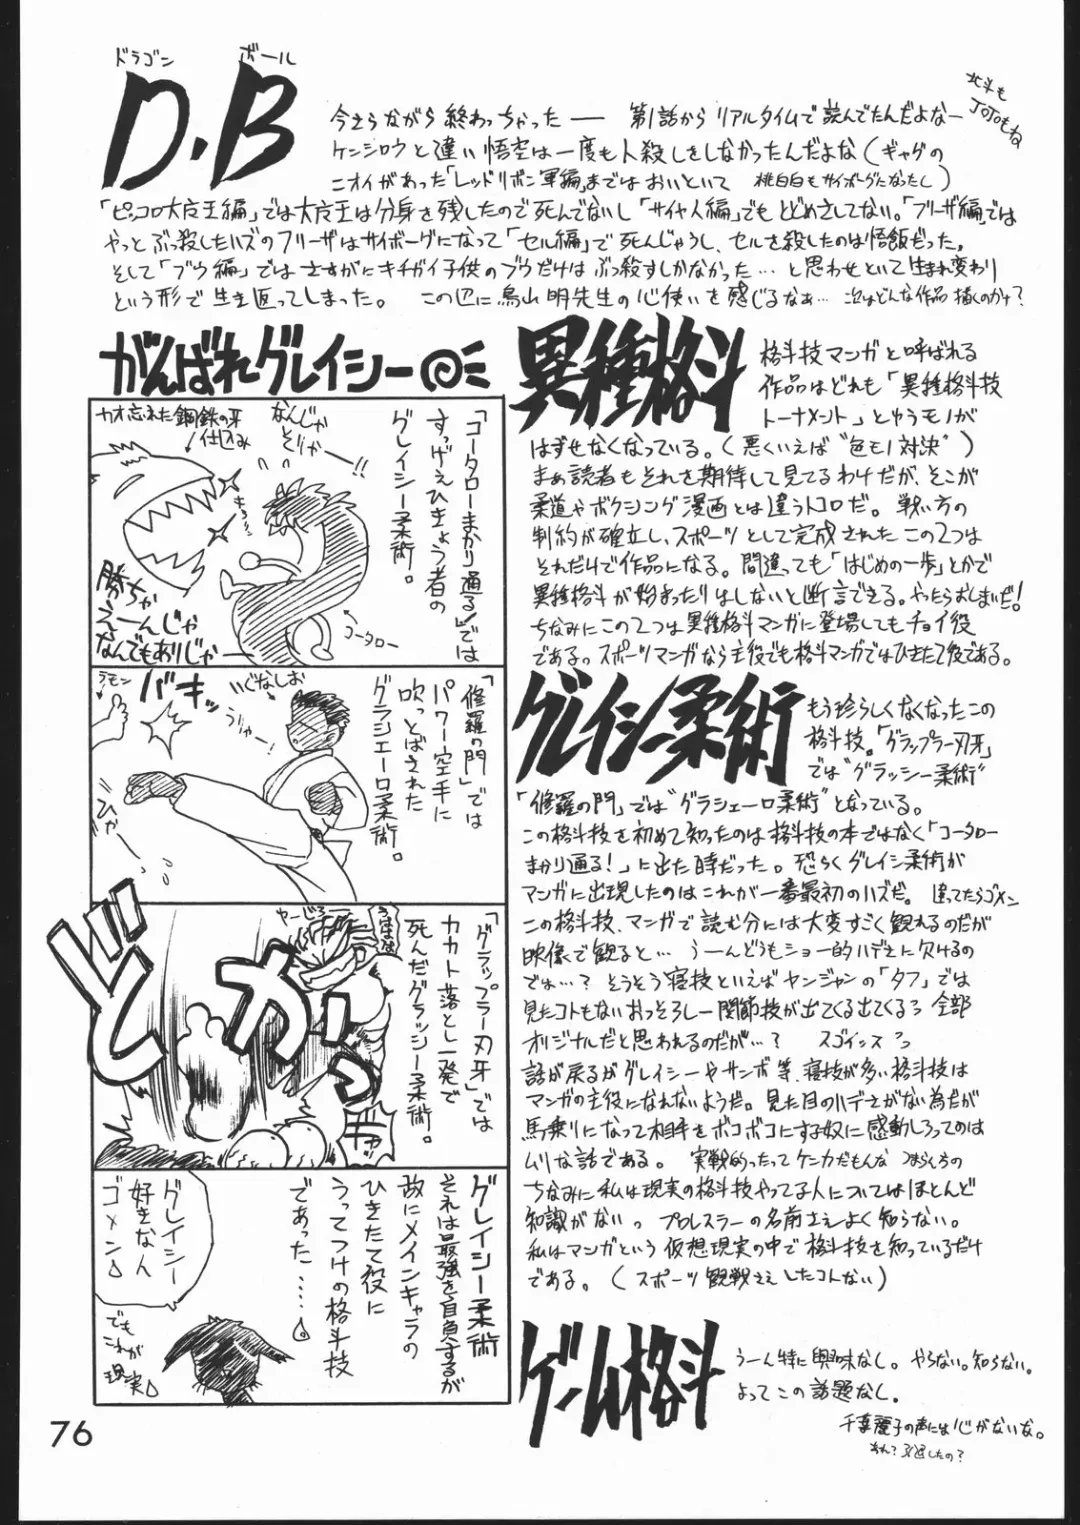 ドラゴン ボール
D.B
今さらながら終わっちゃったー 第1話からリアルタイムで読んでたんだよなー
北斗も
JOJOもね
ケンシロウと違い悟空は一度も人殺しをしなかったんだよな(ギャグの
ニオイがあった「レッドリボン軍編」まではおいといて 桃白白もサイボーグになったし)
「ピッコロ大魔王編」では大魔王は分身を残したので死んでないし「サイヤ人編」でもとどめさしてない。「フリーザ編」では
やっとぶっ殺したハズのフリーザはサイボーグになって「セル編」で死んじゃうし、セルを殺したのは悟飯だった。
そして「ブウ編」ではさすがにキチガイ子供のブウだけはぶっ殺すしかなかった…と思わせといて生まれ変わり
という形で生き返ってしまった。 この辺に鳥山明先生の心使いを感じるなぁ… 次はどんな作品描くのかナ?
がんばれグレイシー
カオ忘れた鋼鉄の牙
仕込み
なんじゃ
そりゃー!!
「コータローまかり通る!」では
すっげえひきょう者の
グレイシー柔術。
勝ちゃ
えーんじゃ
なんでもありじゃー
コータロー
ラモン
バキッ
いぐなしお
うりゃー!
「修羅の門」では
パワー空手に
吹っとばされた
グラシエーロ柔術。
ドカッ
やーじろー
「グラップラー刃牙」では
カカト落とし一発で
死んだグラッシー柔術。
グレイシー柔術
それは最強を自負するが
故にメインキャラの
ひきたて役に
うってつけの格斗技
であった……。
グレイシー
好きなん
ゴメン
でも
これが
現実
異種格斗
格斗技マンガと呼ばれる
作品はどれも「異種格斗技
トーナメント」とゆうモノが
はずせなくなっている。(悪くいえば“色モノ対決”)
まぁ読者もそれを期待して見てるわけだが、そこが
柔道やボクシング漫画とは違うトコロだ。戦い方の
制約が確立し、スポーツとして完成されたこの2つは
それだけで作品になる。間違っても「はじめの一歩」とかで
異種格斗が始まったりはしないと断言できる。やったらおしまいだ!
ちなみにこの2つは異種格斗マンガに登場してもチョイ役
である。スポーツマンガなら主役でも格斗マンガではひきたて役である。
グレイシー柔術
もう珍らしくなくなったこの
格斗技。「グラップラー刃牙」
では“グラッシー柔術”
「修羅の門」では“グラシエーロ柔術”となっている。
この格斗技を初めて知ったのは格斗技の本ではなく「コータロー
まかり通る!」に出た時だった。恐らくグレイシー柔術が
マンガに出現したのはこれが一番最初のハズだ。違ってたらゴメン
この格斗技、マンガで読む分には大変すごく観れるのだが
映像で観ると… うーんどうもショー的ハデさに欠けるの
でね…? そうそう寝技といえばヤンジャンの「タフ」では
見たコトもないおっそろしー関節技が出てくる出てくる 全部
オリジナルだと思われるのだが…? スゴインス
話が戻るがグレイシーやサンボ等、寝技が多い格斗技は
マンガの主役になれないようだ。見た目のハデさがない為だが
馬乗りになって相手をボコボコにする奴に感動しろってのは
ムリな話である。 実戦的ったってケンカだもんな
ちなみに私は現実の格斗技やってる人についてはほとんど
知識がない。プロレスラーの名前さえよく知らない。
私はマンガという仮想現実の中で格斗技を知っているだけ
である。(スポーツ観戦さえしたコトない)
ゲーム格斗
うーん特に興味なし。やらない。知らない。
よってこの話題なし。
千葉麗子の声には心がないな。
それ?引退したの?
76